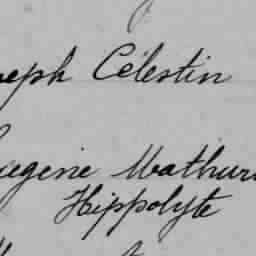 seph Célestin
Eugene Mathur
Hippolyte